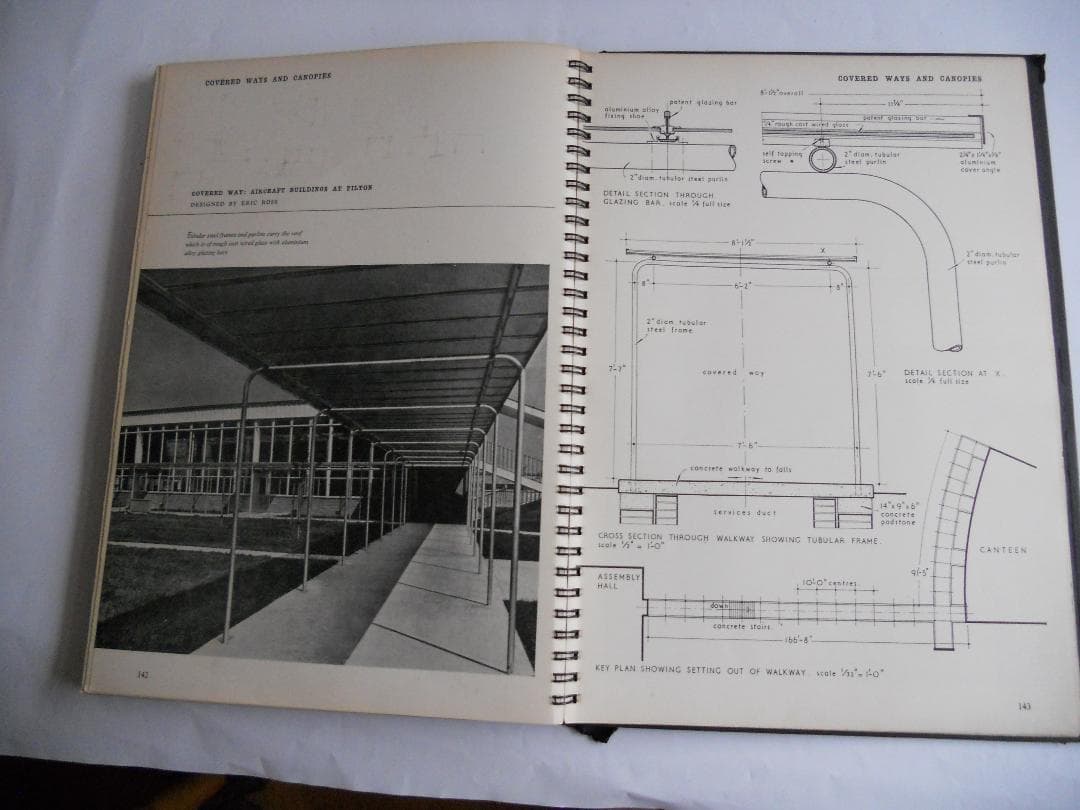 COVERED WAYS AND CANOPIES
COVERED WAY: AIRCRAFT BUILDINGS AT FILTON
DESIGNED BY ERIC ROSS
Tubular steel frames and purlins carry the roof
which is of rough cast wired glass with aluminium
alloy glazing bars
142
COVERED WAYS AND CANOPIES
aluminium alloy
fixing shoe
patent glazing bar
2" diam. tubular steel purlin
DETAIL SECTION THROUGH
GLAZING BAR. scale ¼ full size
8'-1½" overall
11¼"
patent glazing bar
¼" rough cast wired glass
self tapping
screw
2" diam. tubular
steel purlin
aluminium
cover angle
2" diam. tubular
steel purlin
DETAIL SECTION AT 'X'.
scale ¼ full size
8'-1½"
X
8"
6'-2"
8"
2" diam. tubular
steel frame
7'-7"
covered way
7'-6"
7'-6"
concrete walkway to falls
services duct
14"x9"x6"
concrete
padstone
CROSS SECTION THROUGH WALKWAY SHOWING TUBULAR FRAME.
scale ½" = 1'-0"
ASSEMBLY
HALL
CANTEEN
91'-5"
10'-0" centres.
down
concrete stairs.
166'-8"
KEY PLAN SHOWING SETTING OUT OF WALKWAY. scale 1/32" = 1'-0"
143